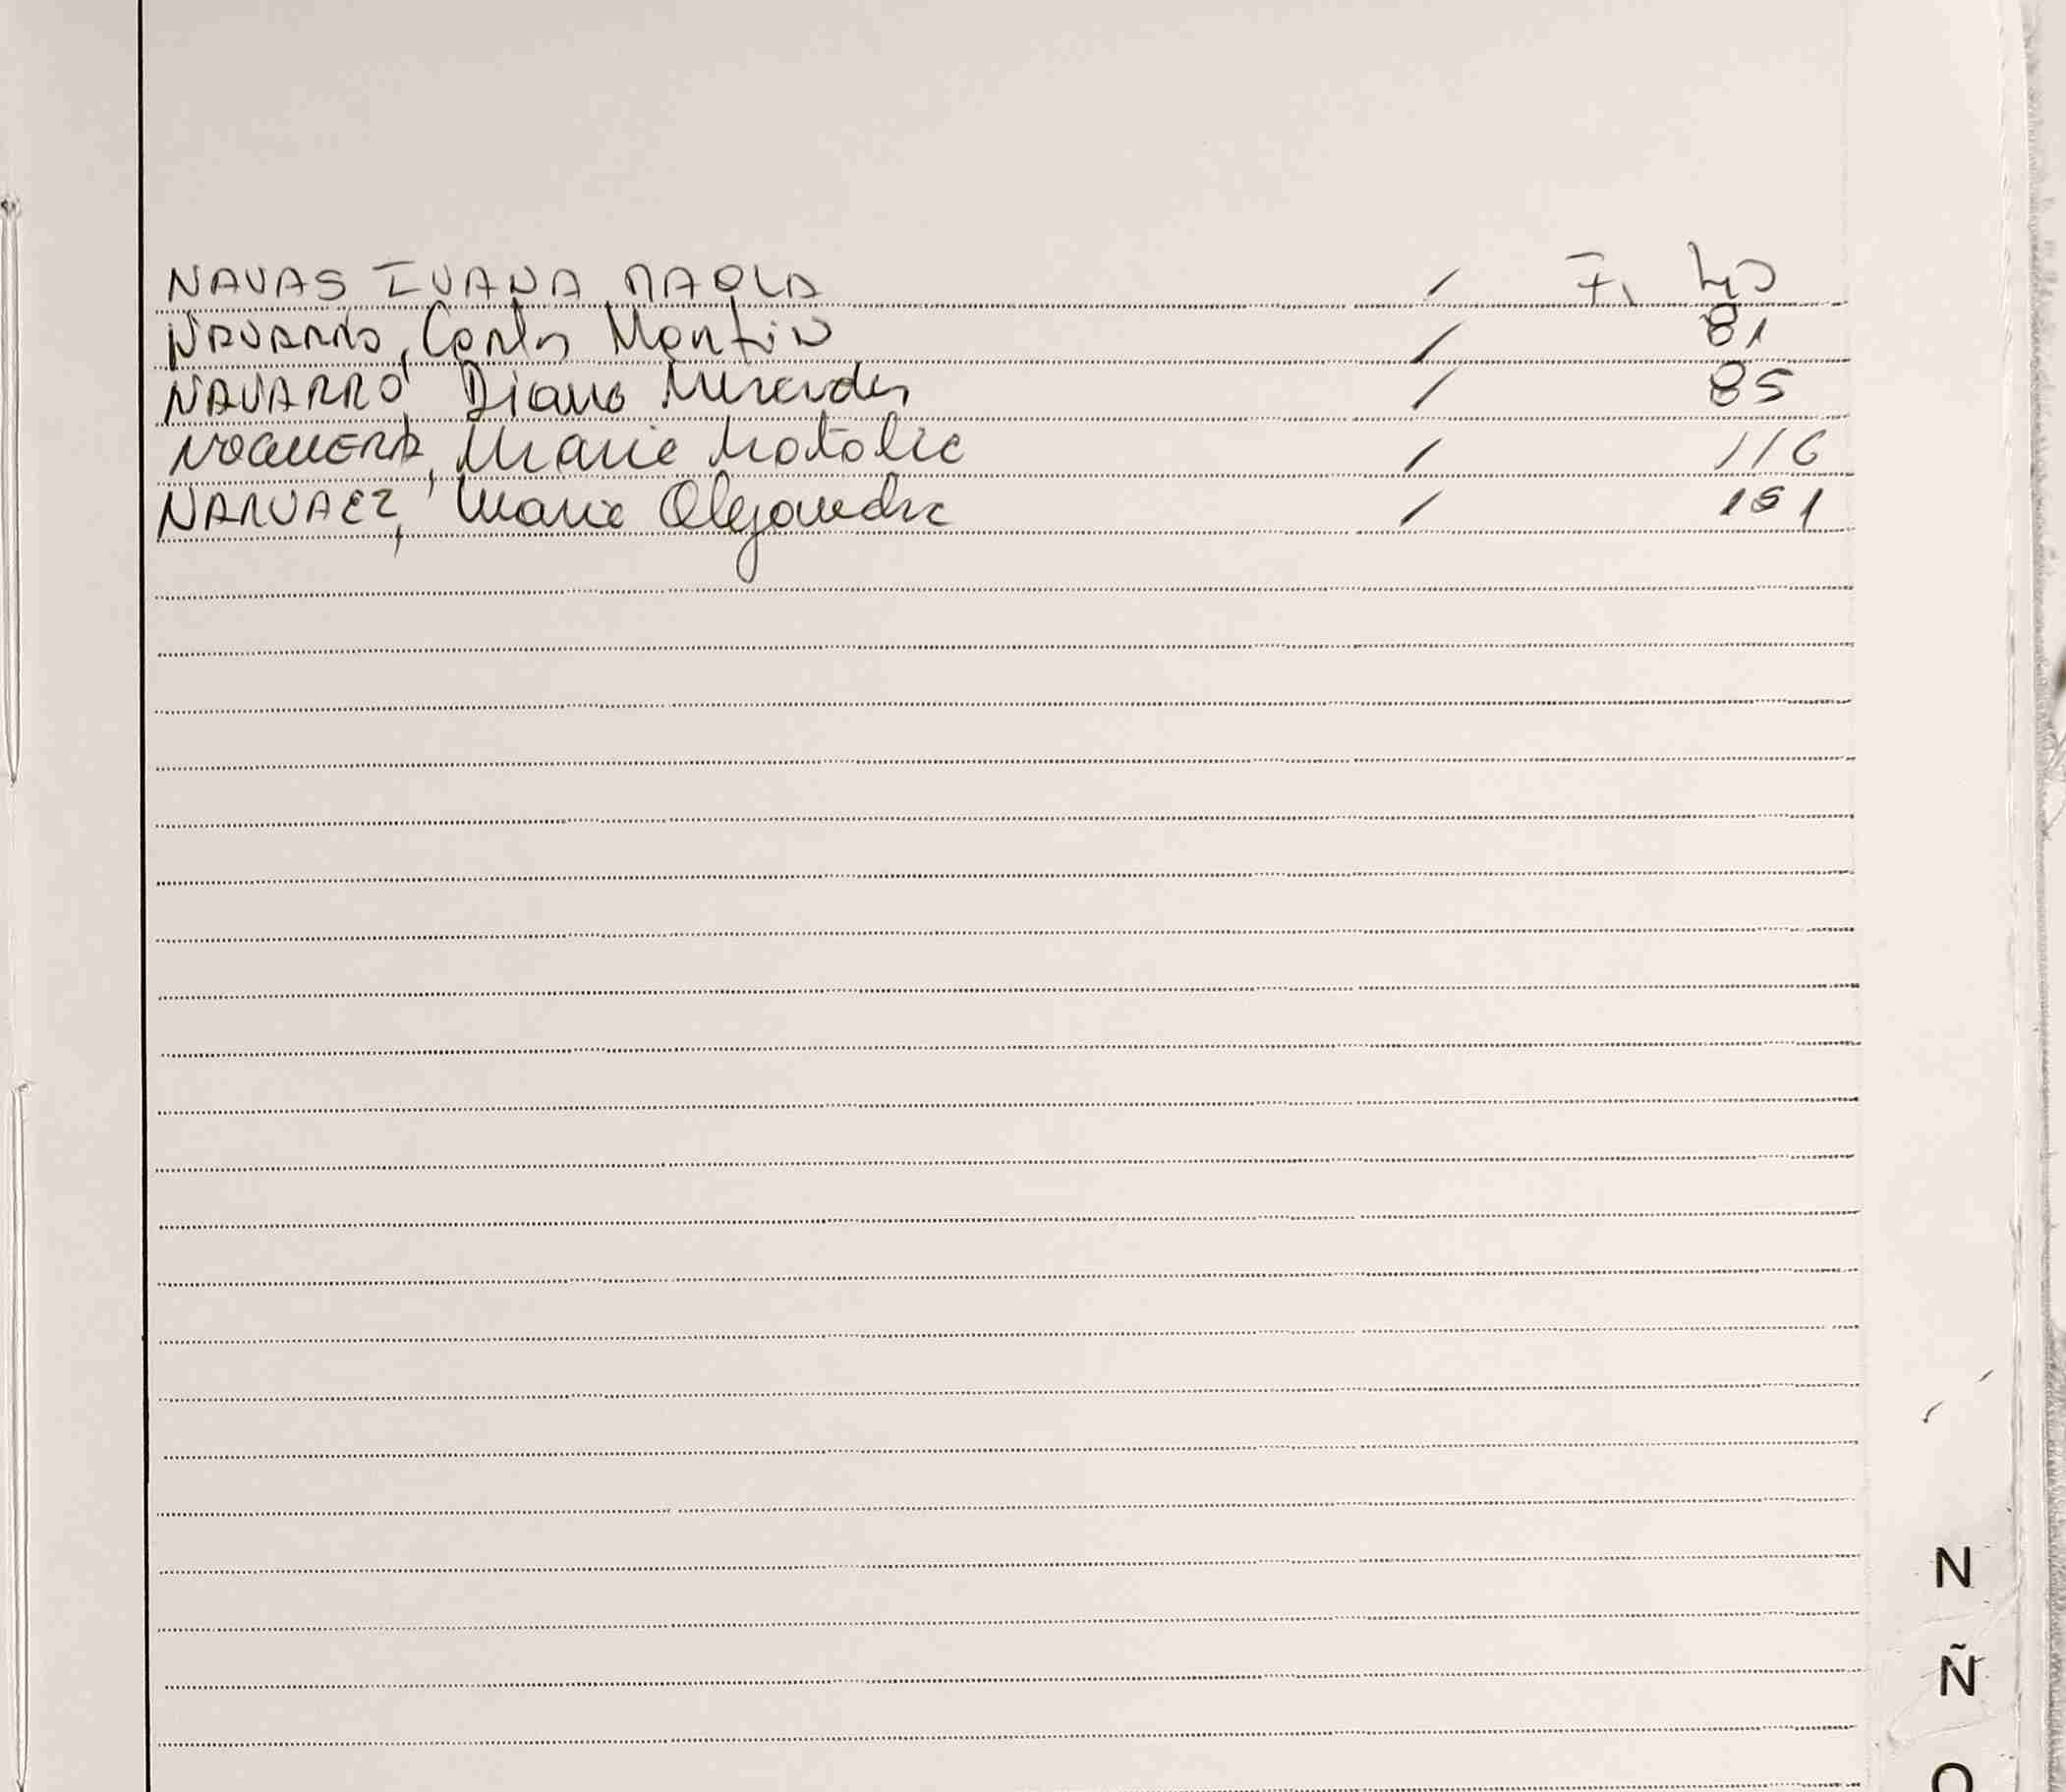 NAVAS IVANA PAOLA / F.
NAVARRO, Carlos Martin / 81
NAVARRO, Diana Mercedes / 85
NOGUERA, Maria Natalia / 116
NARVAEZ, Maria Alejandra / 151
N
Ñ
O